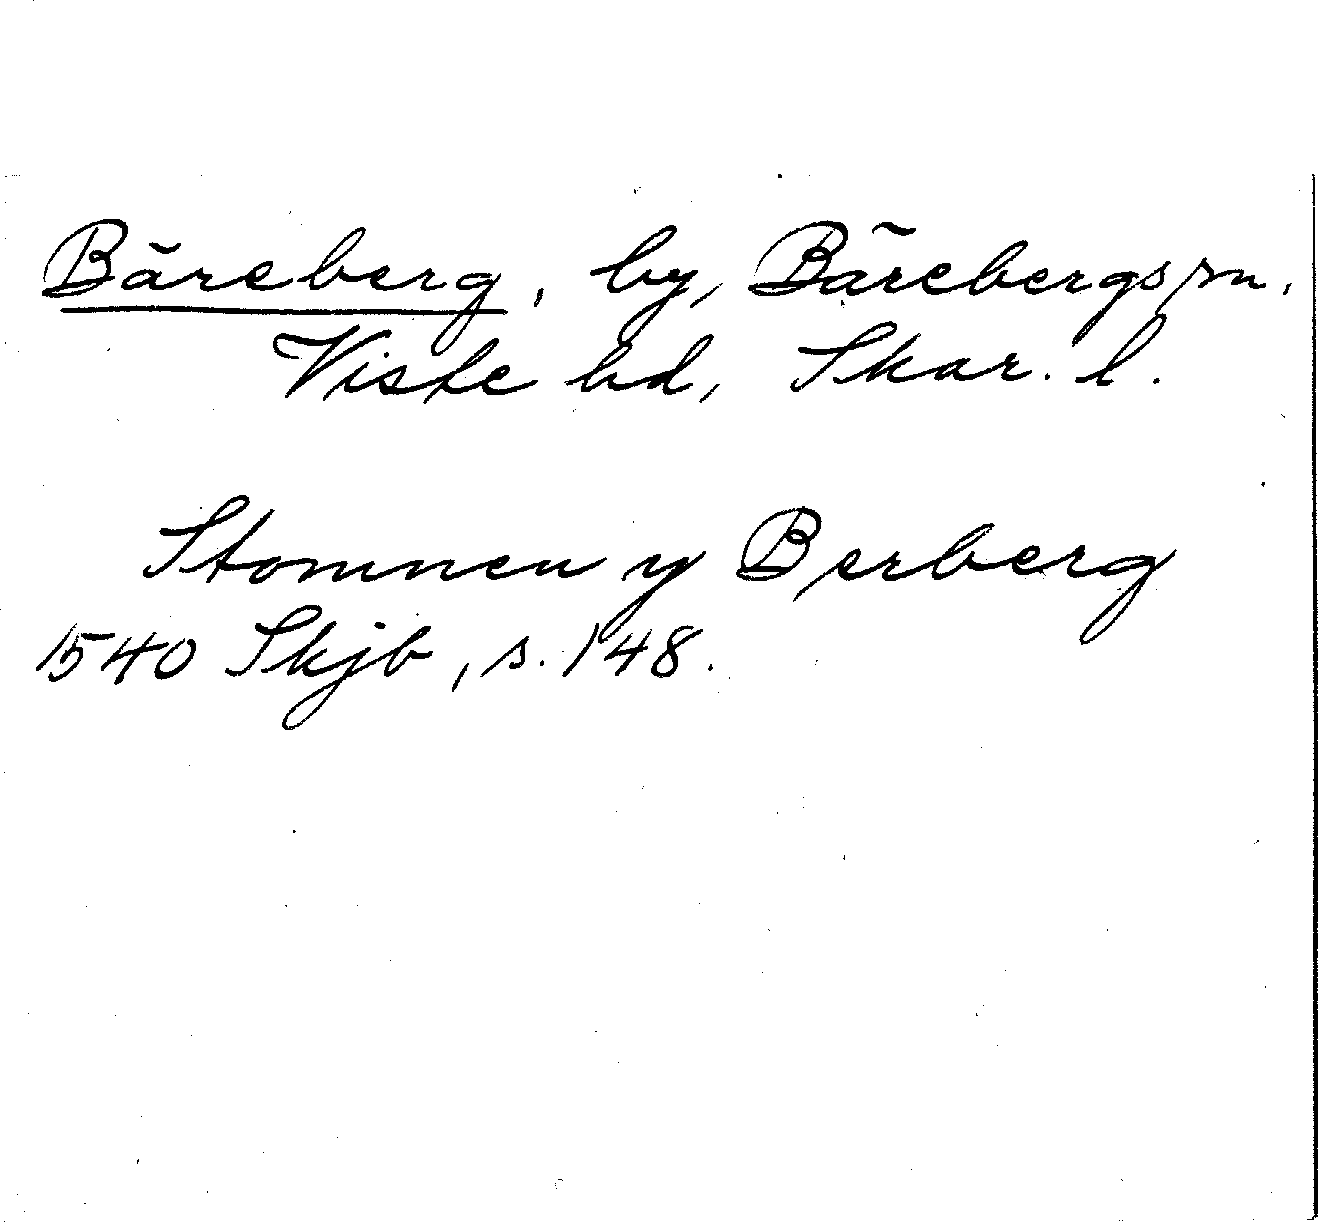 Bäreberg, by, Bärebergs sn,
Viste hd, Skar. l.
Stommen y Berberg
1540 Skjb, s. 148.